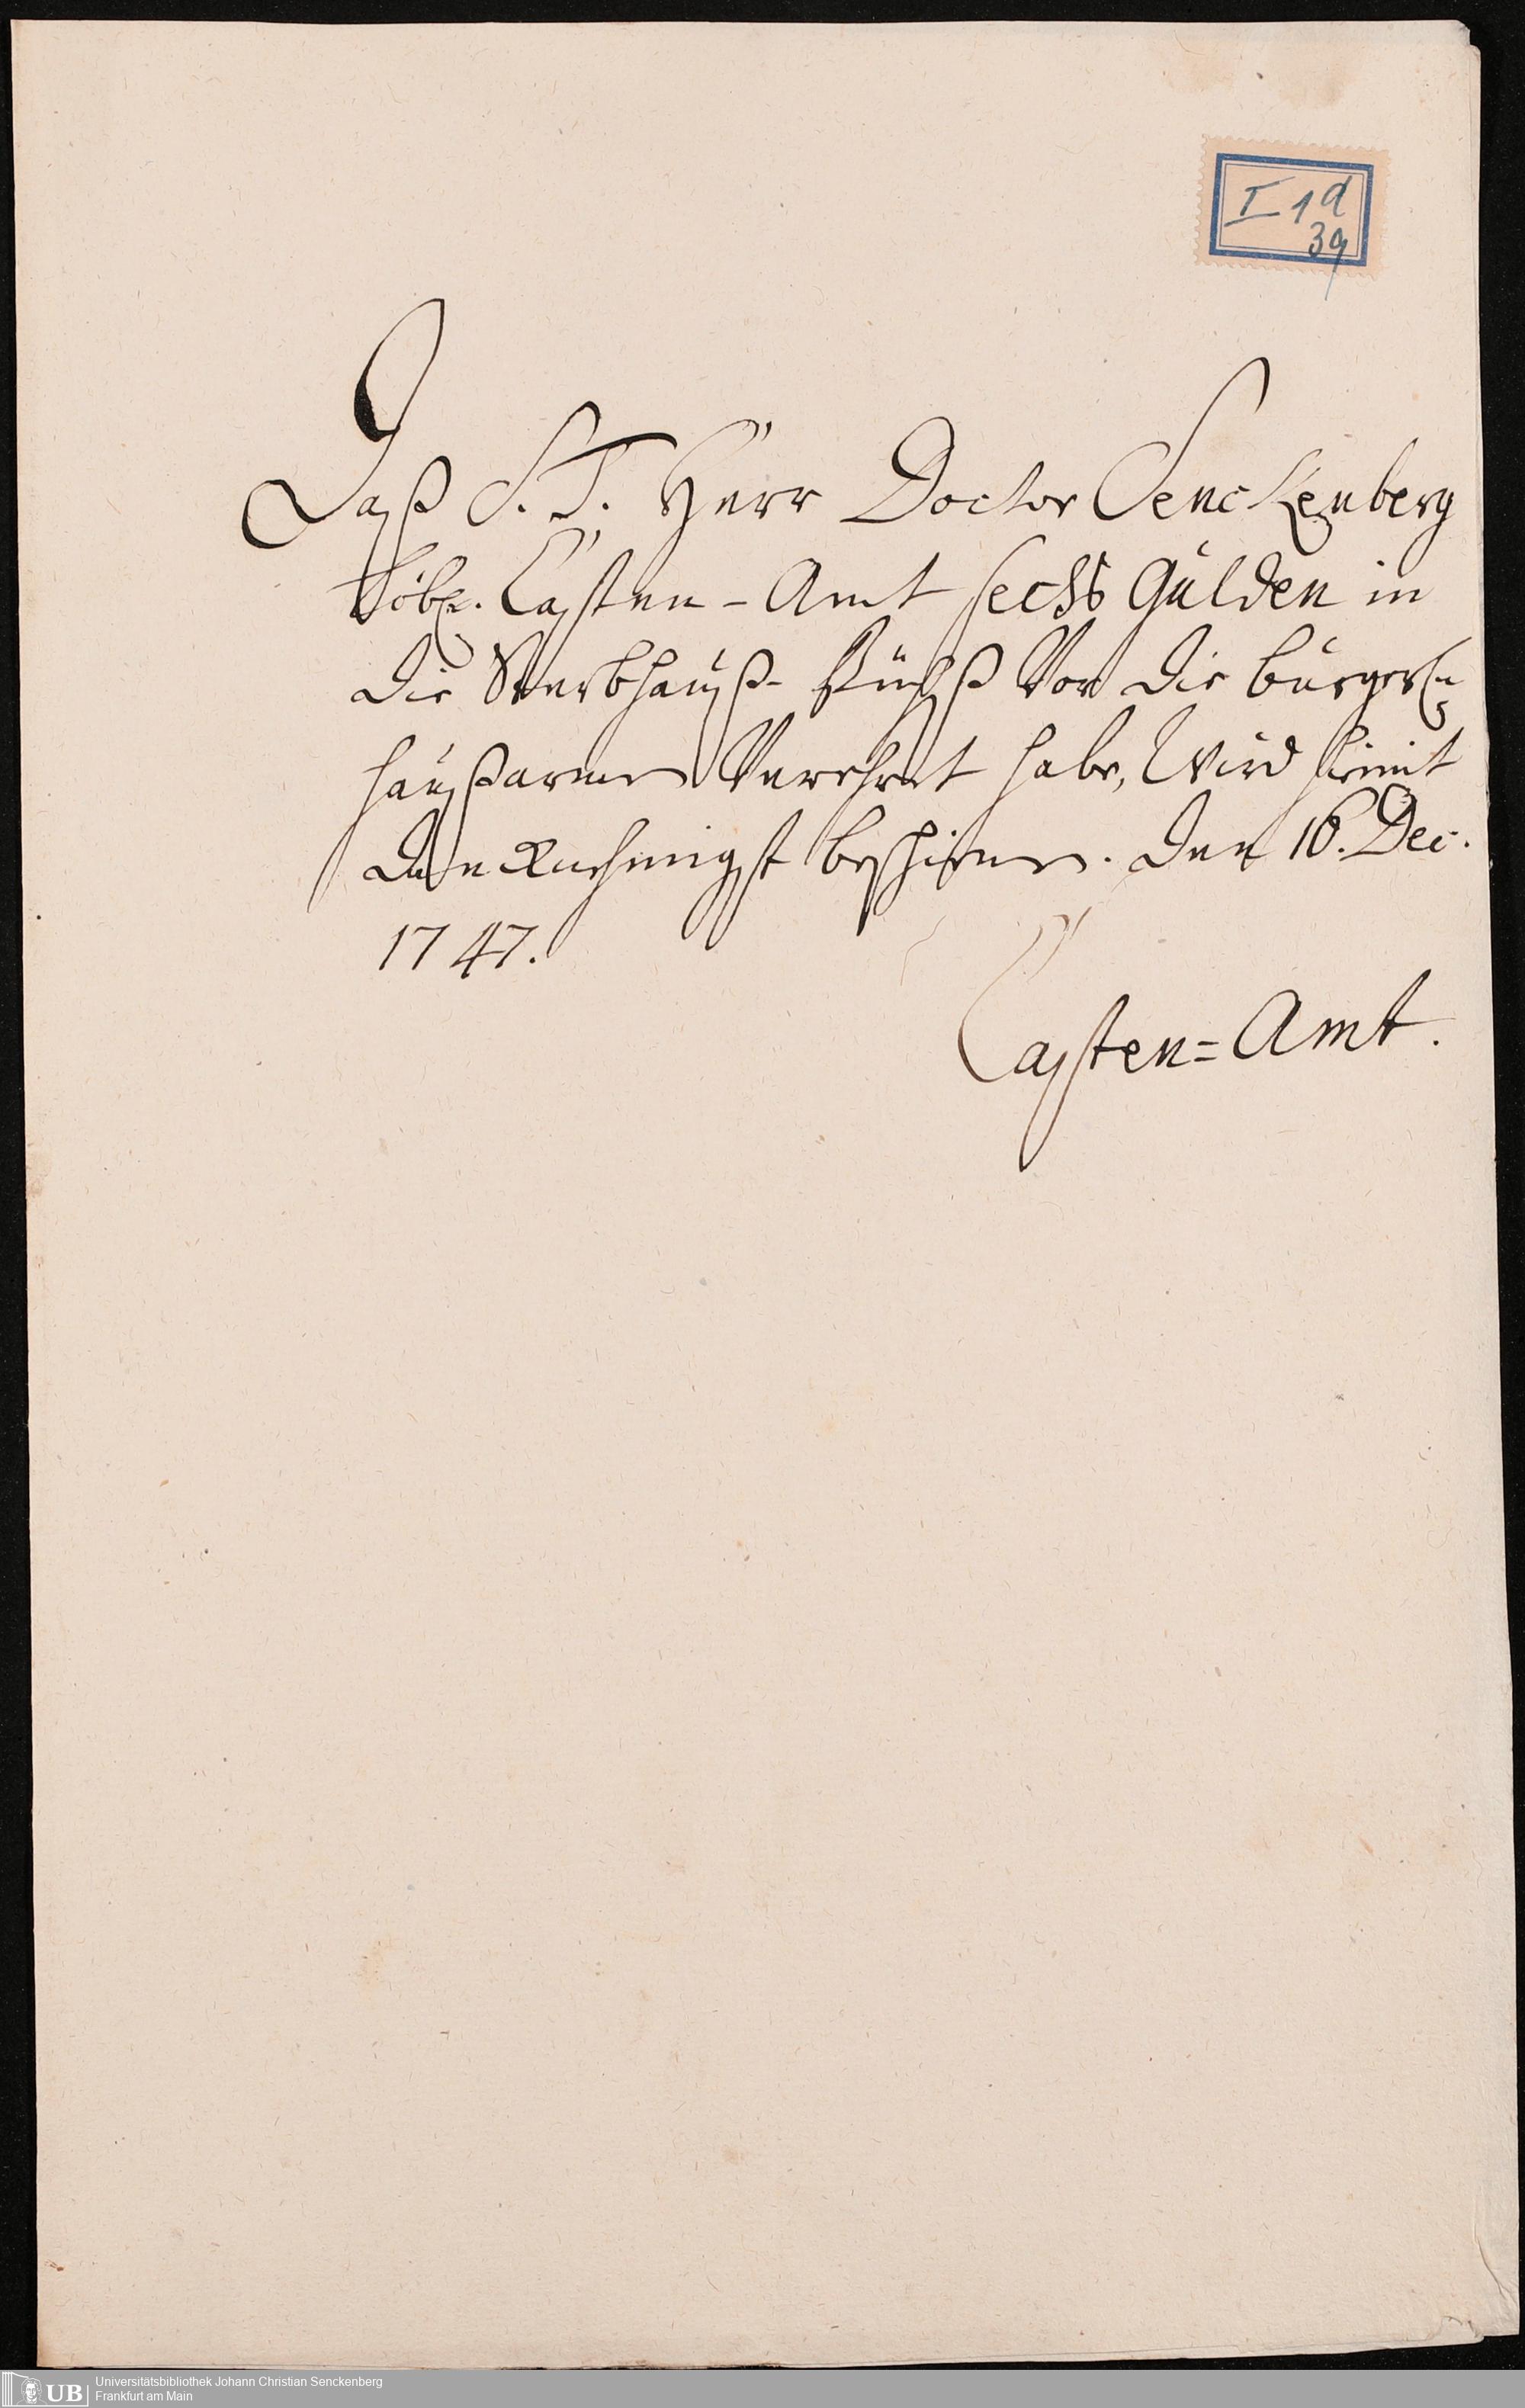 I 1d
39
Daß S. T. Herr Doctor Senckenberg
Löbl. Casten-Amt sechs Gulden in
die Sterbhauß-Büchß Vor die bürgerln
haußarmen Verehret habe, Wird hiemit
dancknehmigst bescheinet. Den 16. Dec.
1747.
Casten=Amt.
UB
Universitätsbibliothek Johann Christian Senckenberg
Frankfurt am Main